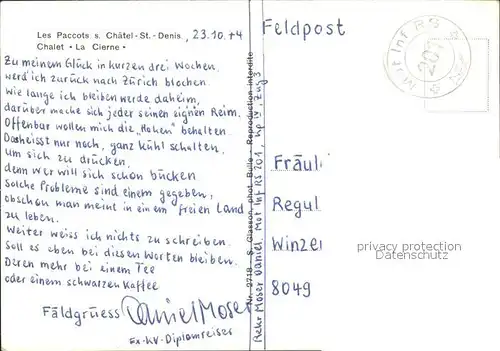 Les Paccots s. Châtel-St.-Denis, 23.10.74
Chalet «La Cierne»
Zu meinem Glück in kurzen drei Wochen,
werd'ich zurück nach Zürich blochen.
Wie lange ich bleiben werde daheim,
darüber mache sich jeder seinen eignen Reim.
Offenbar wollen mich die „Hohen" behalten.
Das heisst nur noch, ganz kühl schalten,
um sich zu drücken,
denn wer will sich schon bücken
Solche Probleme sind einem gegeben,
obschon man meint in einem freien Land
zu leben.
Weiter weiss ich nichts zu schreiben.
Soll es eben bei diesen Worten bleiben.
Deren mehr bei einem Tee
oder einem schwarzen Kaffee
Fäldgrüess Daniel Moser
Ex-KV-Diplomreiser
Nr. 9718 - S. Glasson, phot. Bulle - Reproduction interdite
Rekr Moser Daniel, Mot Inf RS 201, Kp IV, Zug 3
Feldpost
Mot Inf RS
201
Fräuli
Regul
Winzer
8049
privacy protection
watermark